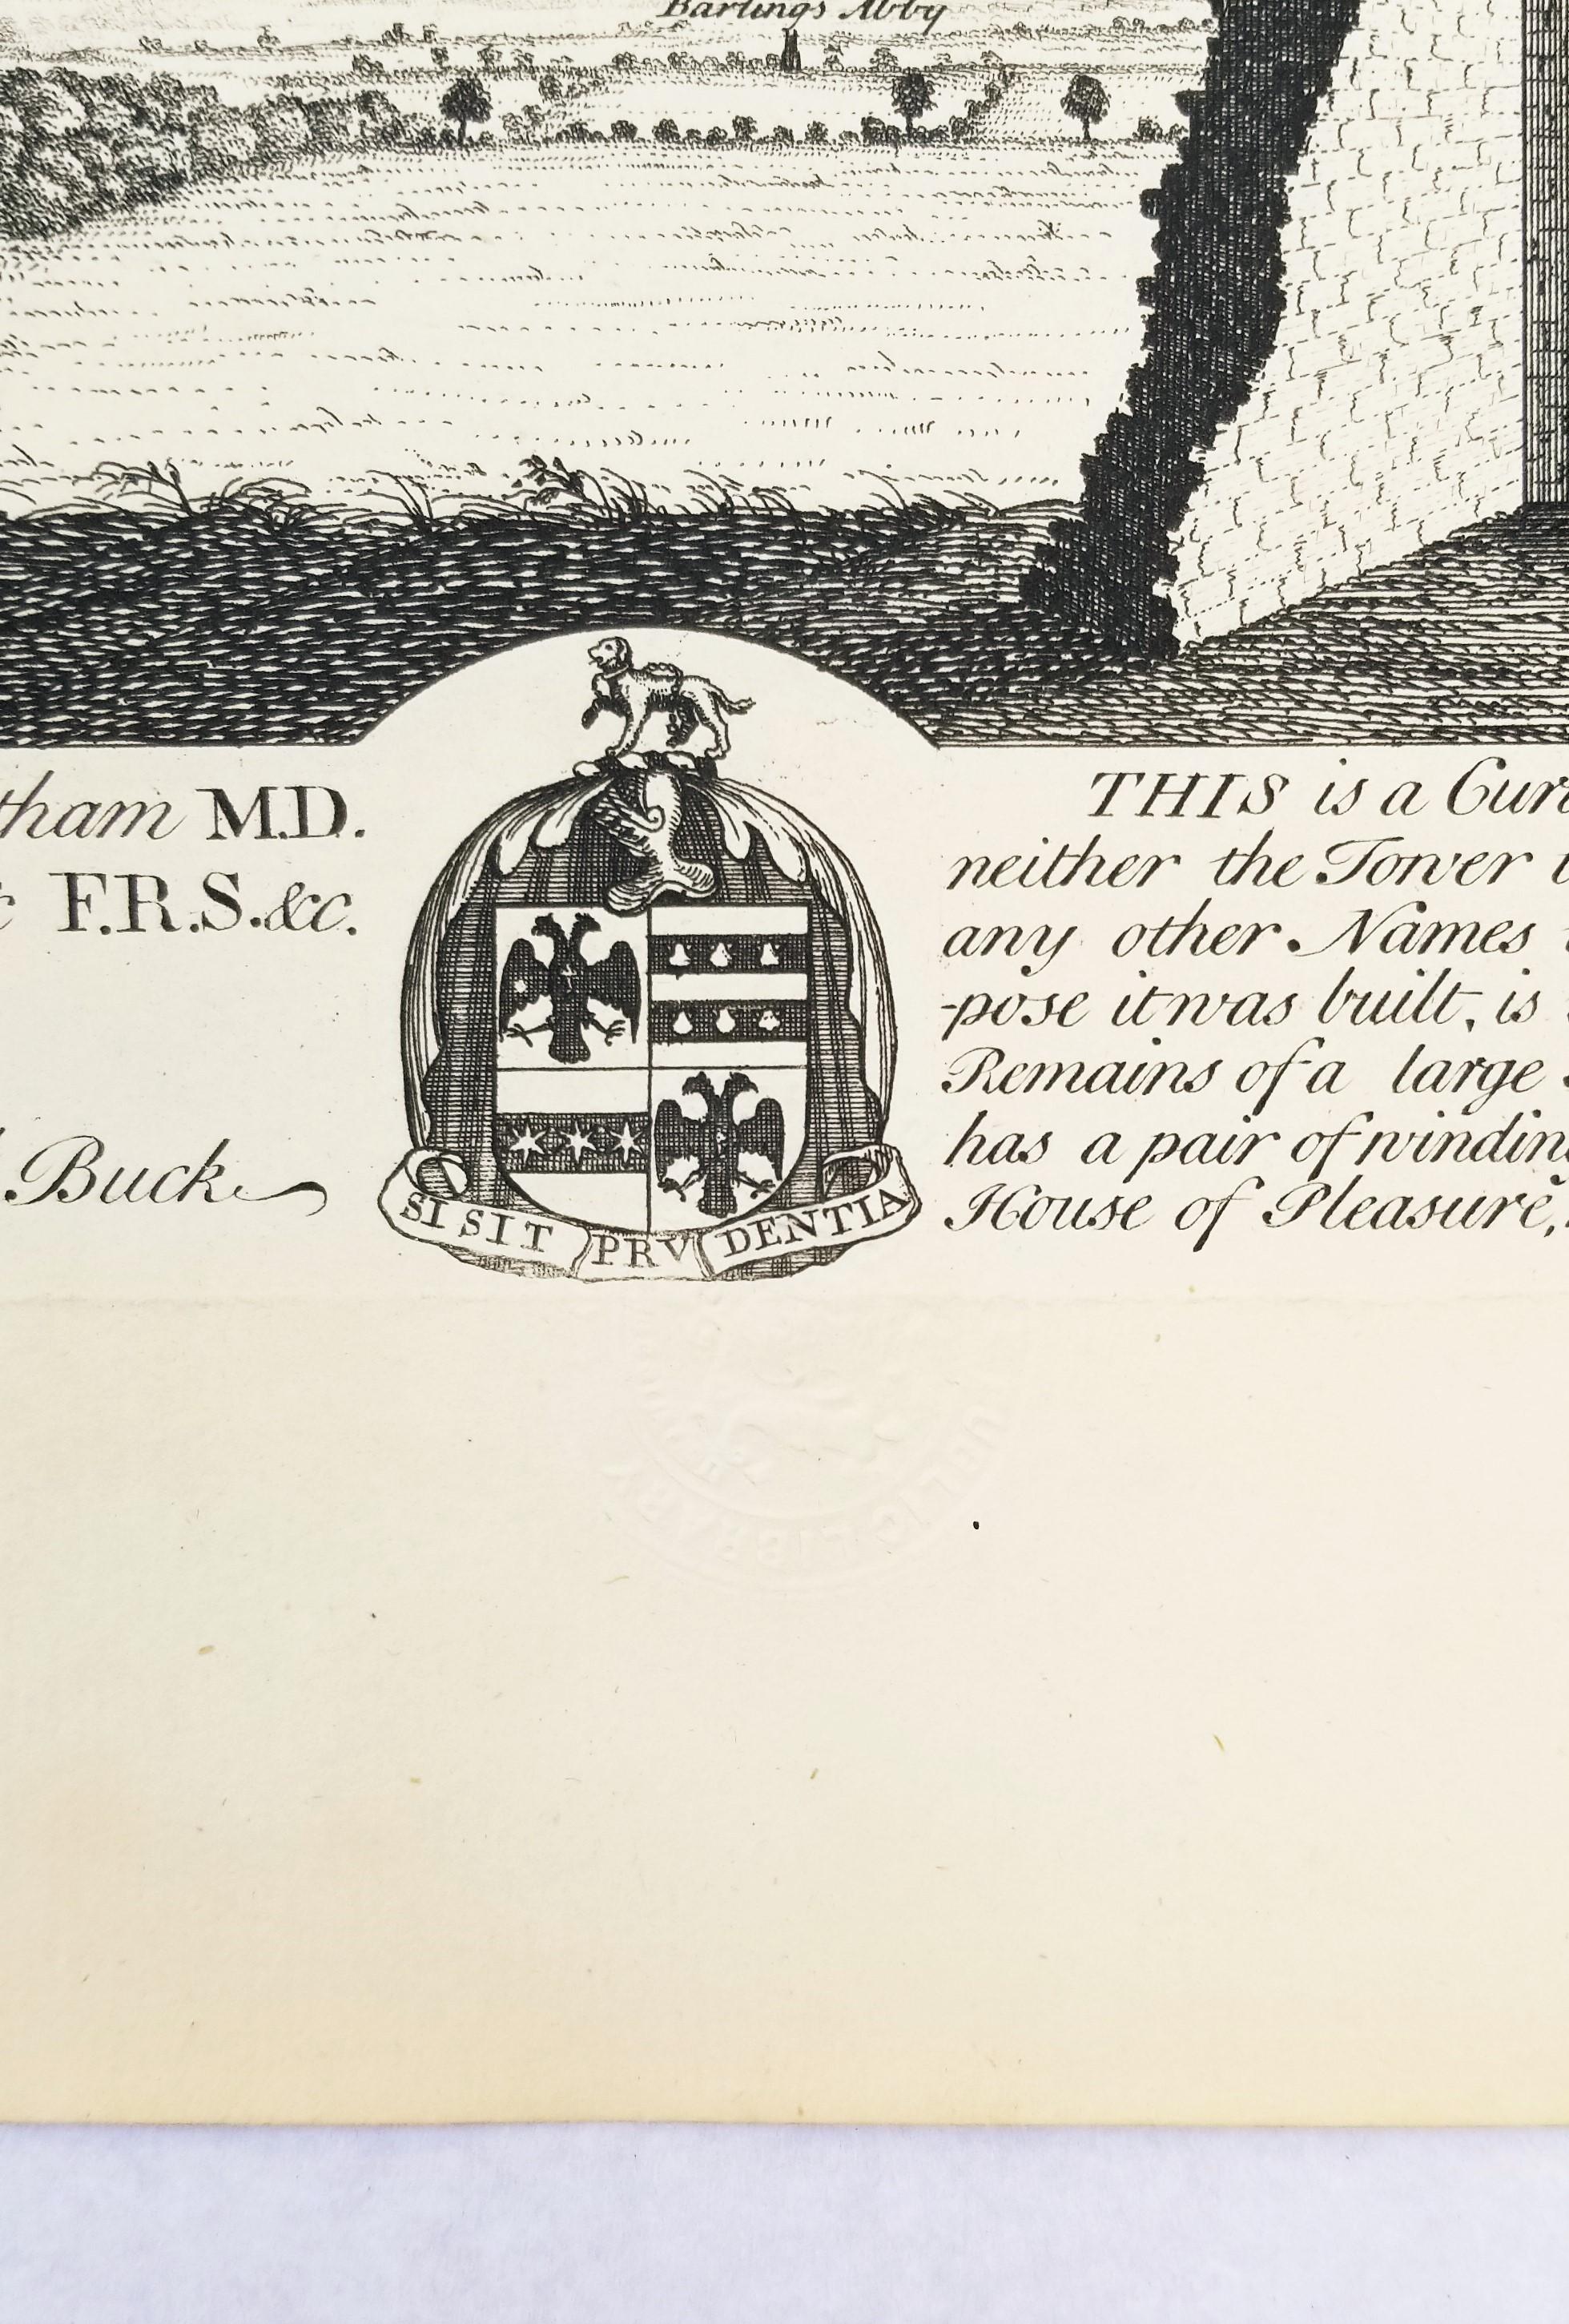 Barlings Abby
tham M.D.
F.R.S. &c.
Buck
SI SIT PRVDENTIA
THIS is a
neither the Tower
any other Names
-pose it was built, is
Remains of a large
has a pair of
House of Pleasure,
LIBRARY